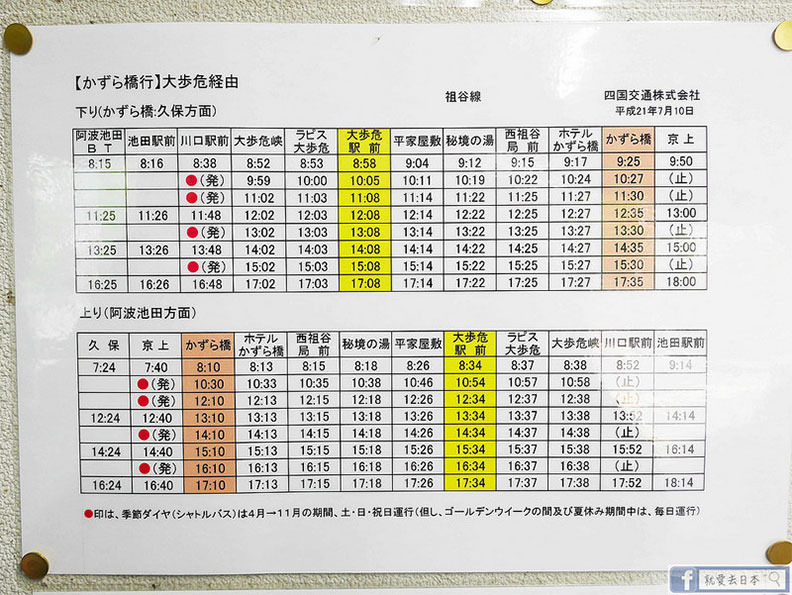 【かずら橋行】大歩危経由
祖谷線
四国交通株式会社
下り(かずら橋:久保方面)
平成21年7月10日
阿波池田BT 池田駅前 川口駅前 大歩危峡 ラピス大歩危 大歩危駅前 平家屋敷 秘境の湯 西祖谷局前 ホテルかずら橋 かずら橋 京上
8:15 8:16 8:38 8:52 8:53 8:58 9:04 9:12 9:15 9:17 9:25 9:50
●(発) 9:59 10:00 10:05 10:11 10:19 10:22 10:24 10:27 (止)
●(発) 11:02 11:03 11:08 11:14 11:22 11:25 11:27 11:30 (止)
11:25 11:26 11:48 12:02 12:03 12:08 12:14 12:22 12:25 12:27 12:35 13:00
●(発) 13:02 13:03 13:08 13:14 13:22 13:25 13:27 13:30 (止)
13:25 13:26 13:48 14:02 14:03 14:08 14:14 14:22 14:25 14:27 14:35 15:00
●(発) 15:02 15:03 15:08 15:14 15:22 15:25 15:27 15:30 (止)
16:25 16:26 16:48 17:02 17:03 17:08 17:14 17:22 17:25 17:27 17:35 18:00
上り(阿波池田方面)
久保 京上 かずら橋 ホテルかずら橋 西祖谷局前 秘境の湯 平家屋敷 大歩危駅前 ラピス大歩危 大歩危峡 川口駅前 池田駅前
7:24 7:40 8:10 8:13 8:15 8:18 8:26 8:34 8:37 8:38 8:52 9:14
●(発) 10:30 10:33 10:35 10:38 10:46 10:54 10:57 10:58 (止)
●(発) 12:10 12:13 12:15 12:18 12:26 12:34 12:37 12:38 (止)
12:24 12:40 13:10 13:13 13:15 13:18 13:26 13:34 13:37 13:38 13:52 14:14
●(発) 14:10 14:13 14:15 14:18 14:26 14:34 14:37 14:38 (止)
14:24 14:40 15:10 15:13 15:15 15:18 15:26 15:34 15:37 15:38 15:52 16:14
●(発) 16:10 16:13 16:15 16:18 16:26 16:34 16:37 16:38 (止)
16:24 16:40 17:10 17:13 17:15 17:18 17:26 17:34 17:37 17:38 17:52 18:14
●印は、季節ダイヤ(シャトルバス)は4月→11月の期間、土・日・祝日運行(但し、ゴールデンウイークの間及び夏休み期間中は、毎日運行)
f 就愛去日本